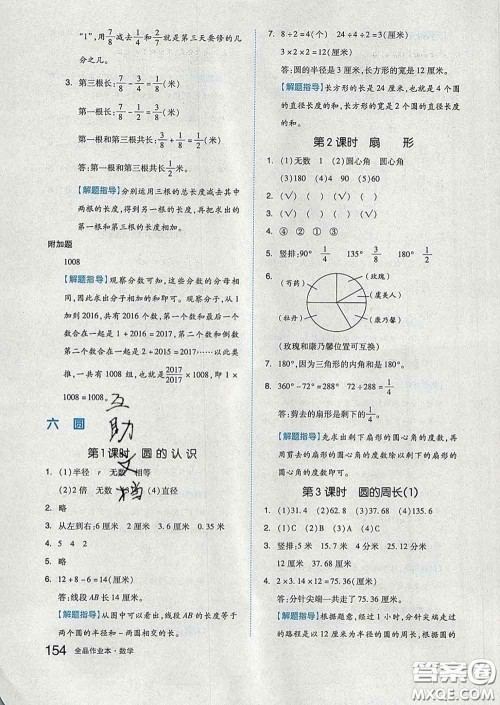 "1",用7/8减去1/4和2/7就是第三天要修的几
分之几。
3. 第三根长:7/8-3/4=1/8(米)
第一根长:7/8-1/2=3/8(米)
第一根和第三根共长:3/8+1/8=1/2(米)
答:第一根和第三根共长1/2米。
【解题指导】分别运用三根的总长度减去其中
两根的长度,得到另一根的长度,再把求出的
第一根和第三根的长度相加。
附加题
1008
【解题指导】观察分数可知,这些分数的分母相
同,因此求出分子相加的和即可。再观察,从 1
加到 2016,共有 2016 个数,第一个数和最后一
个数合在一起是 1+2016=2017,第二个数和倒数
第二个数合在一起是 2+2015=2017……以此类
推,一共有 1008 组,每组都可以写成2017/2017,即 1×
1008=1008。
六 圆
第 1 课时 圆 的 认 识
1. (1)半径 r 无数 相等
(2)2倍 无数 (4)直径
2. 略
3. 从左到右:6 厘米 3 厘米 0.35 米
4. 5 4 2
5. 略
6. 12+8-6=14(厘米)
答:线段 AB 长 14 厘米。
【解题指导】从图中可以看出,线段 AB 的长度等于
两个圆的半径和-两圆相交的长。
154 全品作业本·数学
互助文档
7. 8÷2=4(个) 24÷2÷4=3(厘米)
3×2×2=12(厘米)
答:圆的半径是 3 厘米,长方形的宽是 12 厘米。
【解题指导】长方形的长是 24 厘米,也就是 4 个圆
的直径的和,长方形的宽就是 2 个圆的直径长度
的和。
第 2 课时 扇 形
1. (1)无数 1 (2)圆心角 圆心角
(3)180 (4)90
2. (√) (√) ( ) (√) ( )
3. (√) ( ) ( ) (√)
4. ④ ② ① ③
5. 竖排:90° 1/4 135° 3/8 180° 1/2
6. (芍药) (玫瑰)
(虞美人)
(牡丹) (康乃馨)
(玫瑰和康乃馨位置可互换)
7. 180°,因为三角形的内角和是 180°。
8. 360°-72°=288° 72°÷288°=1/4
答:剪去的扇形是剩下的1/4。
【解题指导】先求出剩下扇形的圆心角的度数,再
用剪去的扇形的圆心角的度数除以剩下的扇形
的圆心角的度数即可。
第 3 课时 圆的周长(1)
1. (1)31.4 (2)62.8 (3)37.68 (4)135.6
2. ( ) (√) (√) ( )
3. 竖排:5 米 15.7 米 4 米 25.12 分米
12 厘米 37.68 厘米 4 米 2 米
4. 2×3.14×12=75.36(厘米)
答:分针尖端一共走了 75.36 厘米。
【解题指导】根据题意,经过 1 小时,分针尖端走过
的路程是以 12 厘米为半径的圆的周长。圆的
答案圈
MXQE.COM